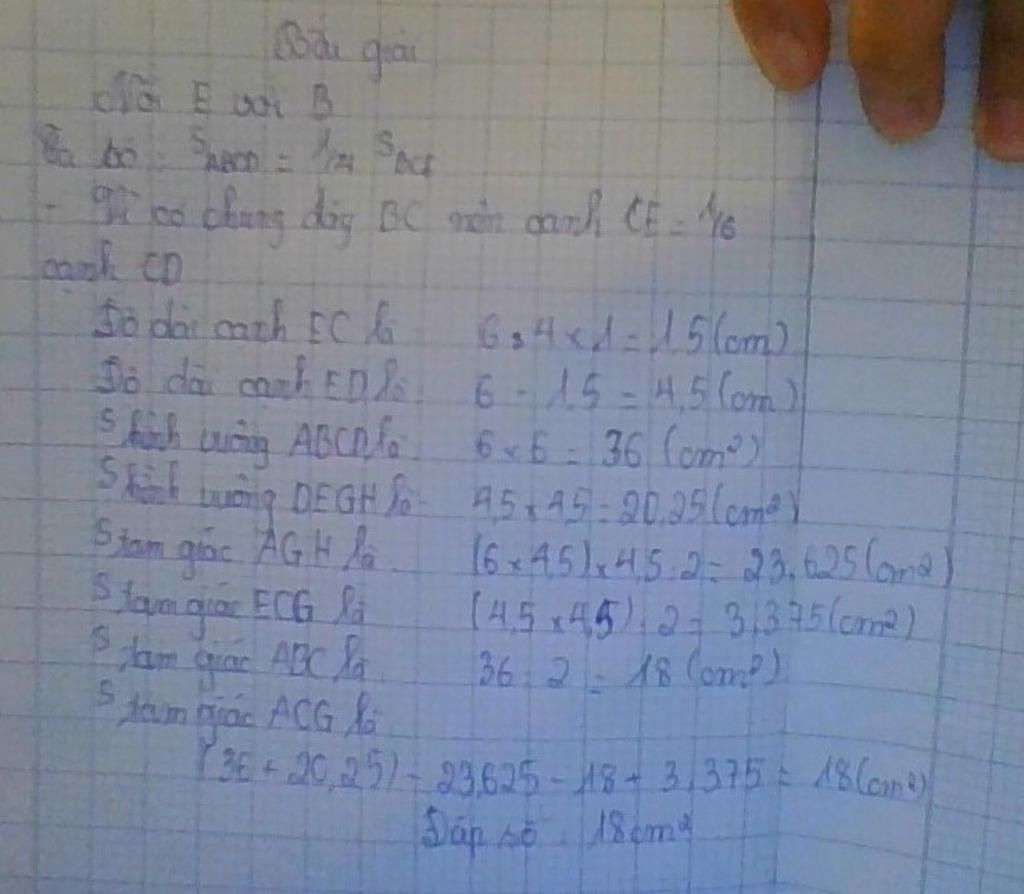 Bài giải
Nối E với B
Ta có: SABCD = 1/4 SBCE
- Vì có chung đáy BC nên cạnh CE = 1/6
cạnh CD
Độ dài cạnh EC là 6 : 4 x 1 = 1,5 (cm)
Độ dài cạnh ED là: 6 - 1,5 = 4,5 (cm)
S hình vuông ABCD là: 6 x 6 = 36 (cm²)
S hình vuông DEGH là: 4,5 x 4,5 = 20,25 (cm²)
S tam giác AGH là (6 x 4,5) x 4,5 : 2 = 23,625 (cm²)
S tam giác ECG là (4,5 x 4,5) : 2 = 3,375 (cm²)
S tam giác ABC là 36 : 2 = 18 (cm²)
S tam giác ACG là
(36 + 20,25) - 23,625 - 18 + 3,375 = 18 (cm²)
Đáp số : 18cm²